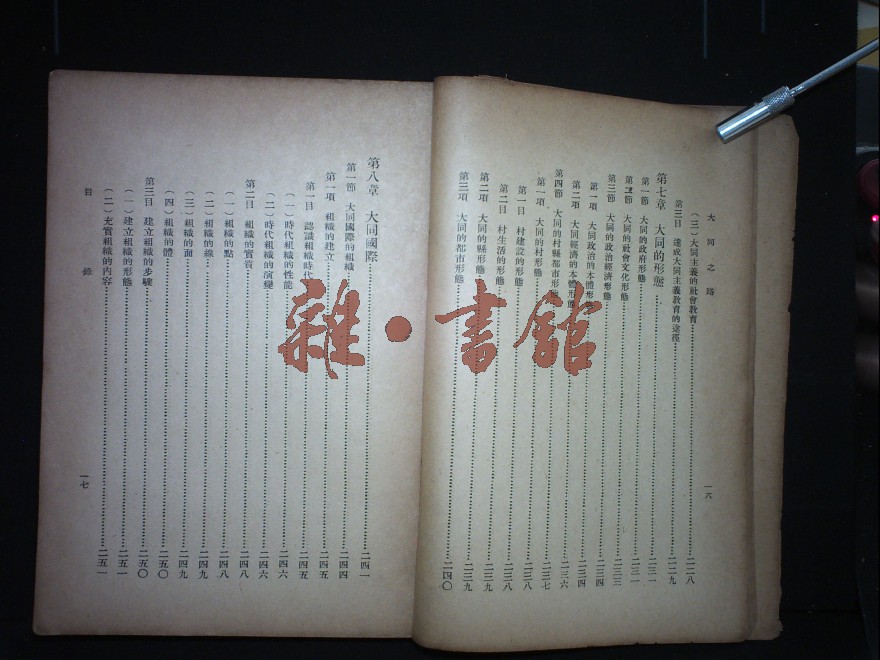 大同之路
一六
（三）大同主義的社會教育…………二二八
第三目 達成大同主義教育的途徑…………二二九
第七章 大同的形態…………二三一
第一節 大同的政府形態…………二三一
第二節 大同的社會文化形態…………二三三
第三節 大同的政治經濟形態…………二三四
第一項 大同政治的本體形態…………二三四
第二項 大同經濟的本體形態…………二三六
第四節 大同的村縣都市形態…………二三七
第一項 大同的村形態…………二三八
第一目 村建設的形態…………二三八
第二目 村生活的形態…………二三九
第二項 大同的縣形態…………二三九
第三項 大同的都市形態…………二四〇
第八章 大同國際…………二四一
第一節 大同國際的組織…………二四四
第一項 組織的建立…………二四五
第一目 認識組織時代…………二四五
（一）時代組織的性能…………二四六
（二）時代組織的演變…………二四六
第二目 組織的實質…………二四八
（一）組織的點…………二四八
（二）組織的線…………二四九
（三）組織的面…………二四九
（四）組織的體…………二五〇
第三目 建立組織的步驟…………二五〇
（一）建立組織的形態…………二五一
（二）充實組織的內容…………二五一
目錄
一七
雜·書館